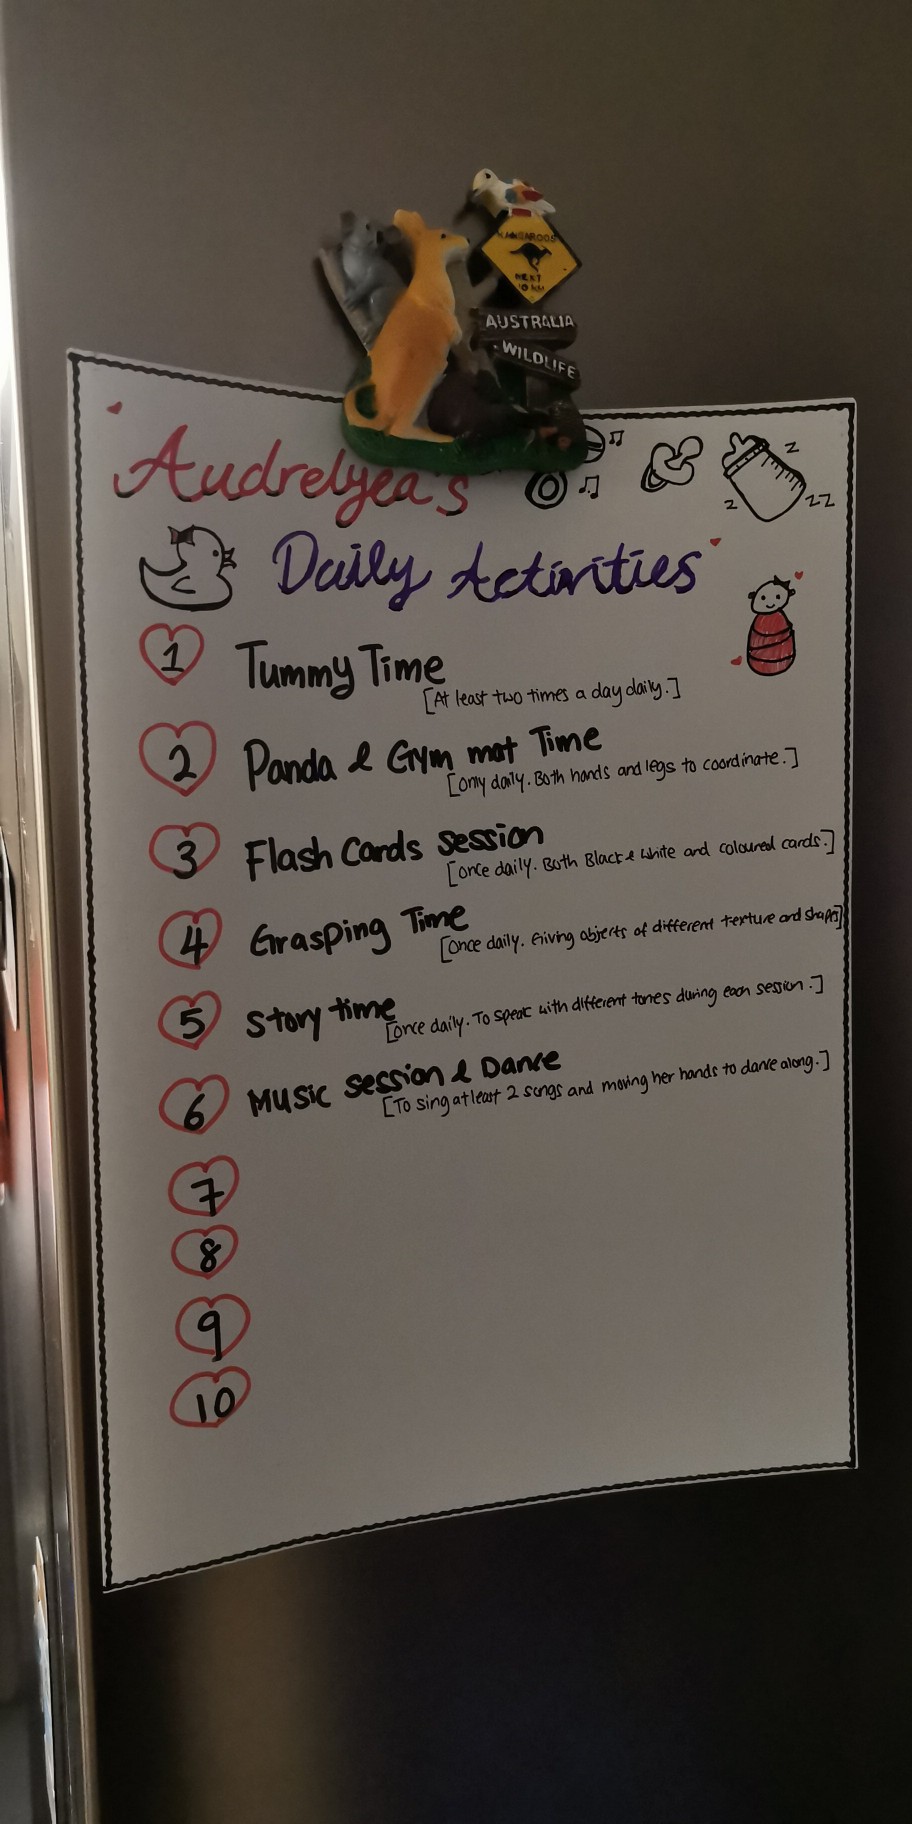 KANGAROOS
NEXT
10 KM
AUSTRALIA
WILDLIFE
Audrelyea's
Daily Activities
1 Tummy Time
[At least two times a day daily.]
2 Panda & Gym mat Time
[only daily. Both hands and legs to coordinate.]
3 Flash Cards session
[once daily. Both Black & White and coloured cards.]
4 Grasping Time
[Once daily. Giving objects of different texture and shapes]
5 Story time
[once daily. To speak with different tones during each session.]
6 Music session & Dance
[To sing at least 2 songs and moving her hands to dance along.]
7
8
9
10
z
z
zz